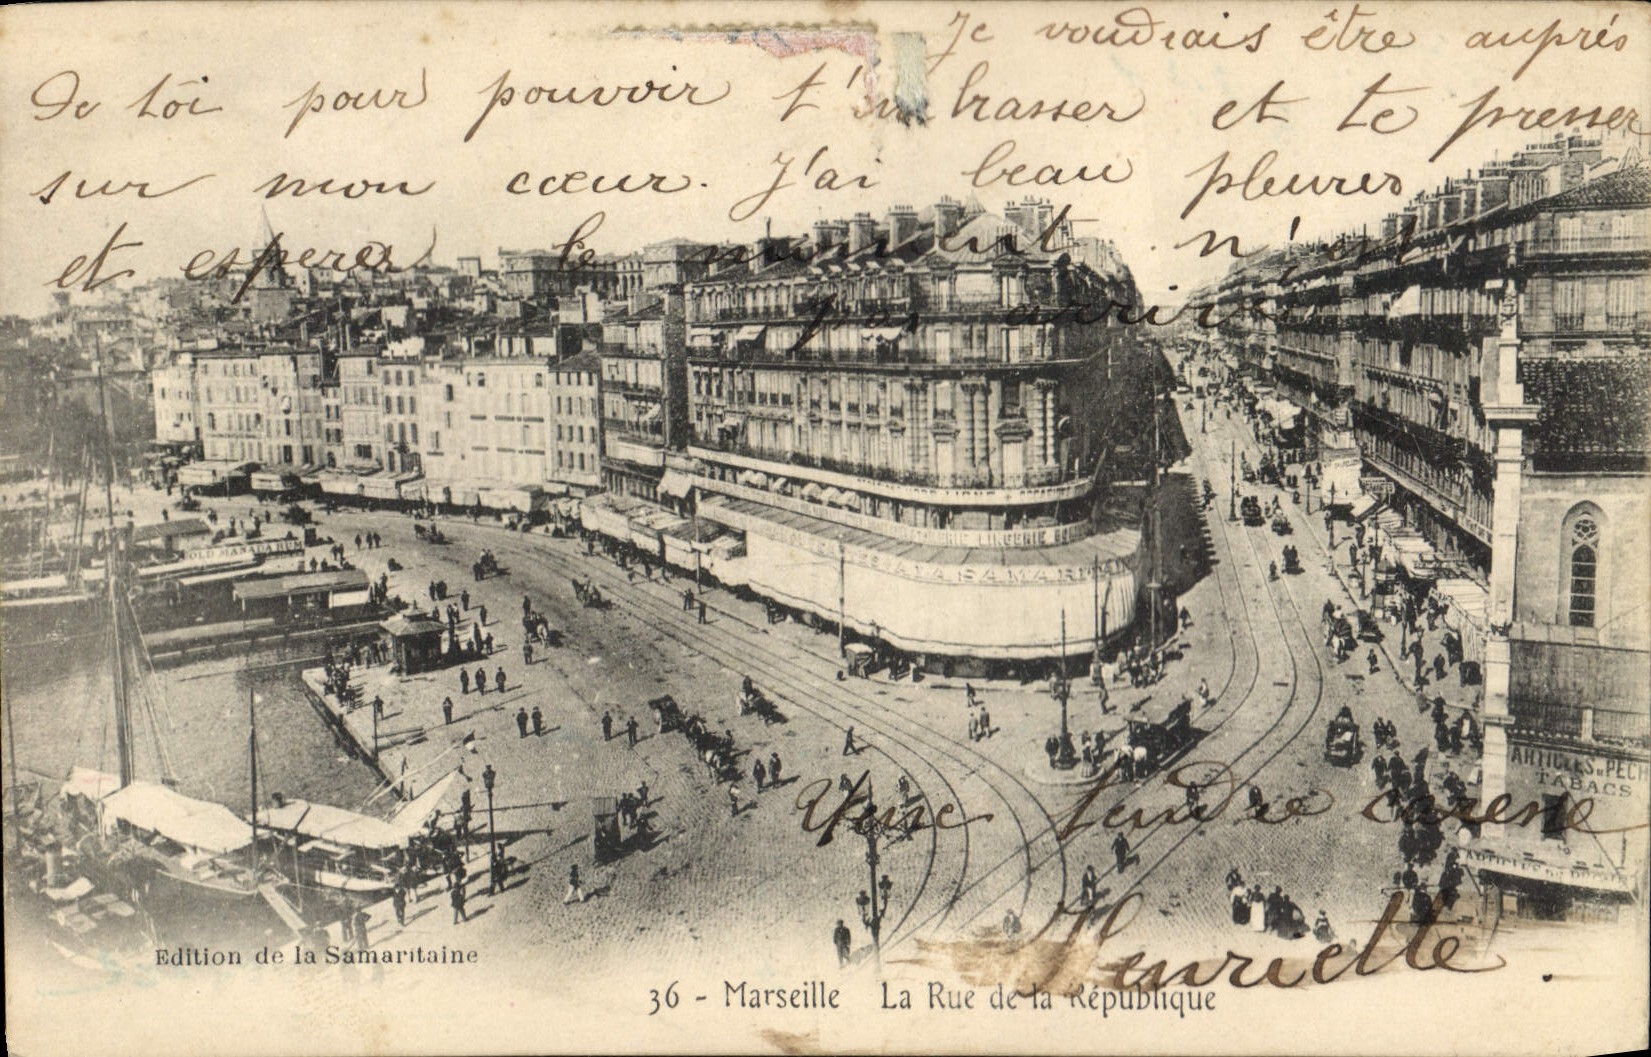 Je voudrais être auprés
de toi pour pouvoir t'embrasser et te presser
sur mon cœur. J'ai beau pleurer
et esperer le moment n'est
pas arrivé
OLD MANADA RUM
LINGERIE
A LA SAMARITAINE
ARTICLES DE PÊCHE
TABACS
Une tendre caresse
Henriette.
Edition de la Samaritaine
36 - Marseille La Rue de la République